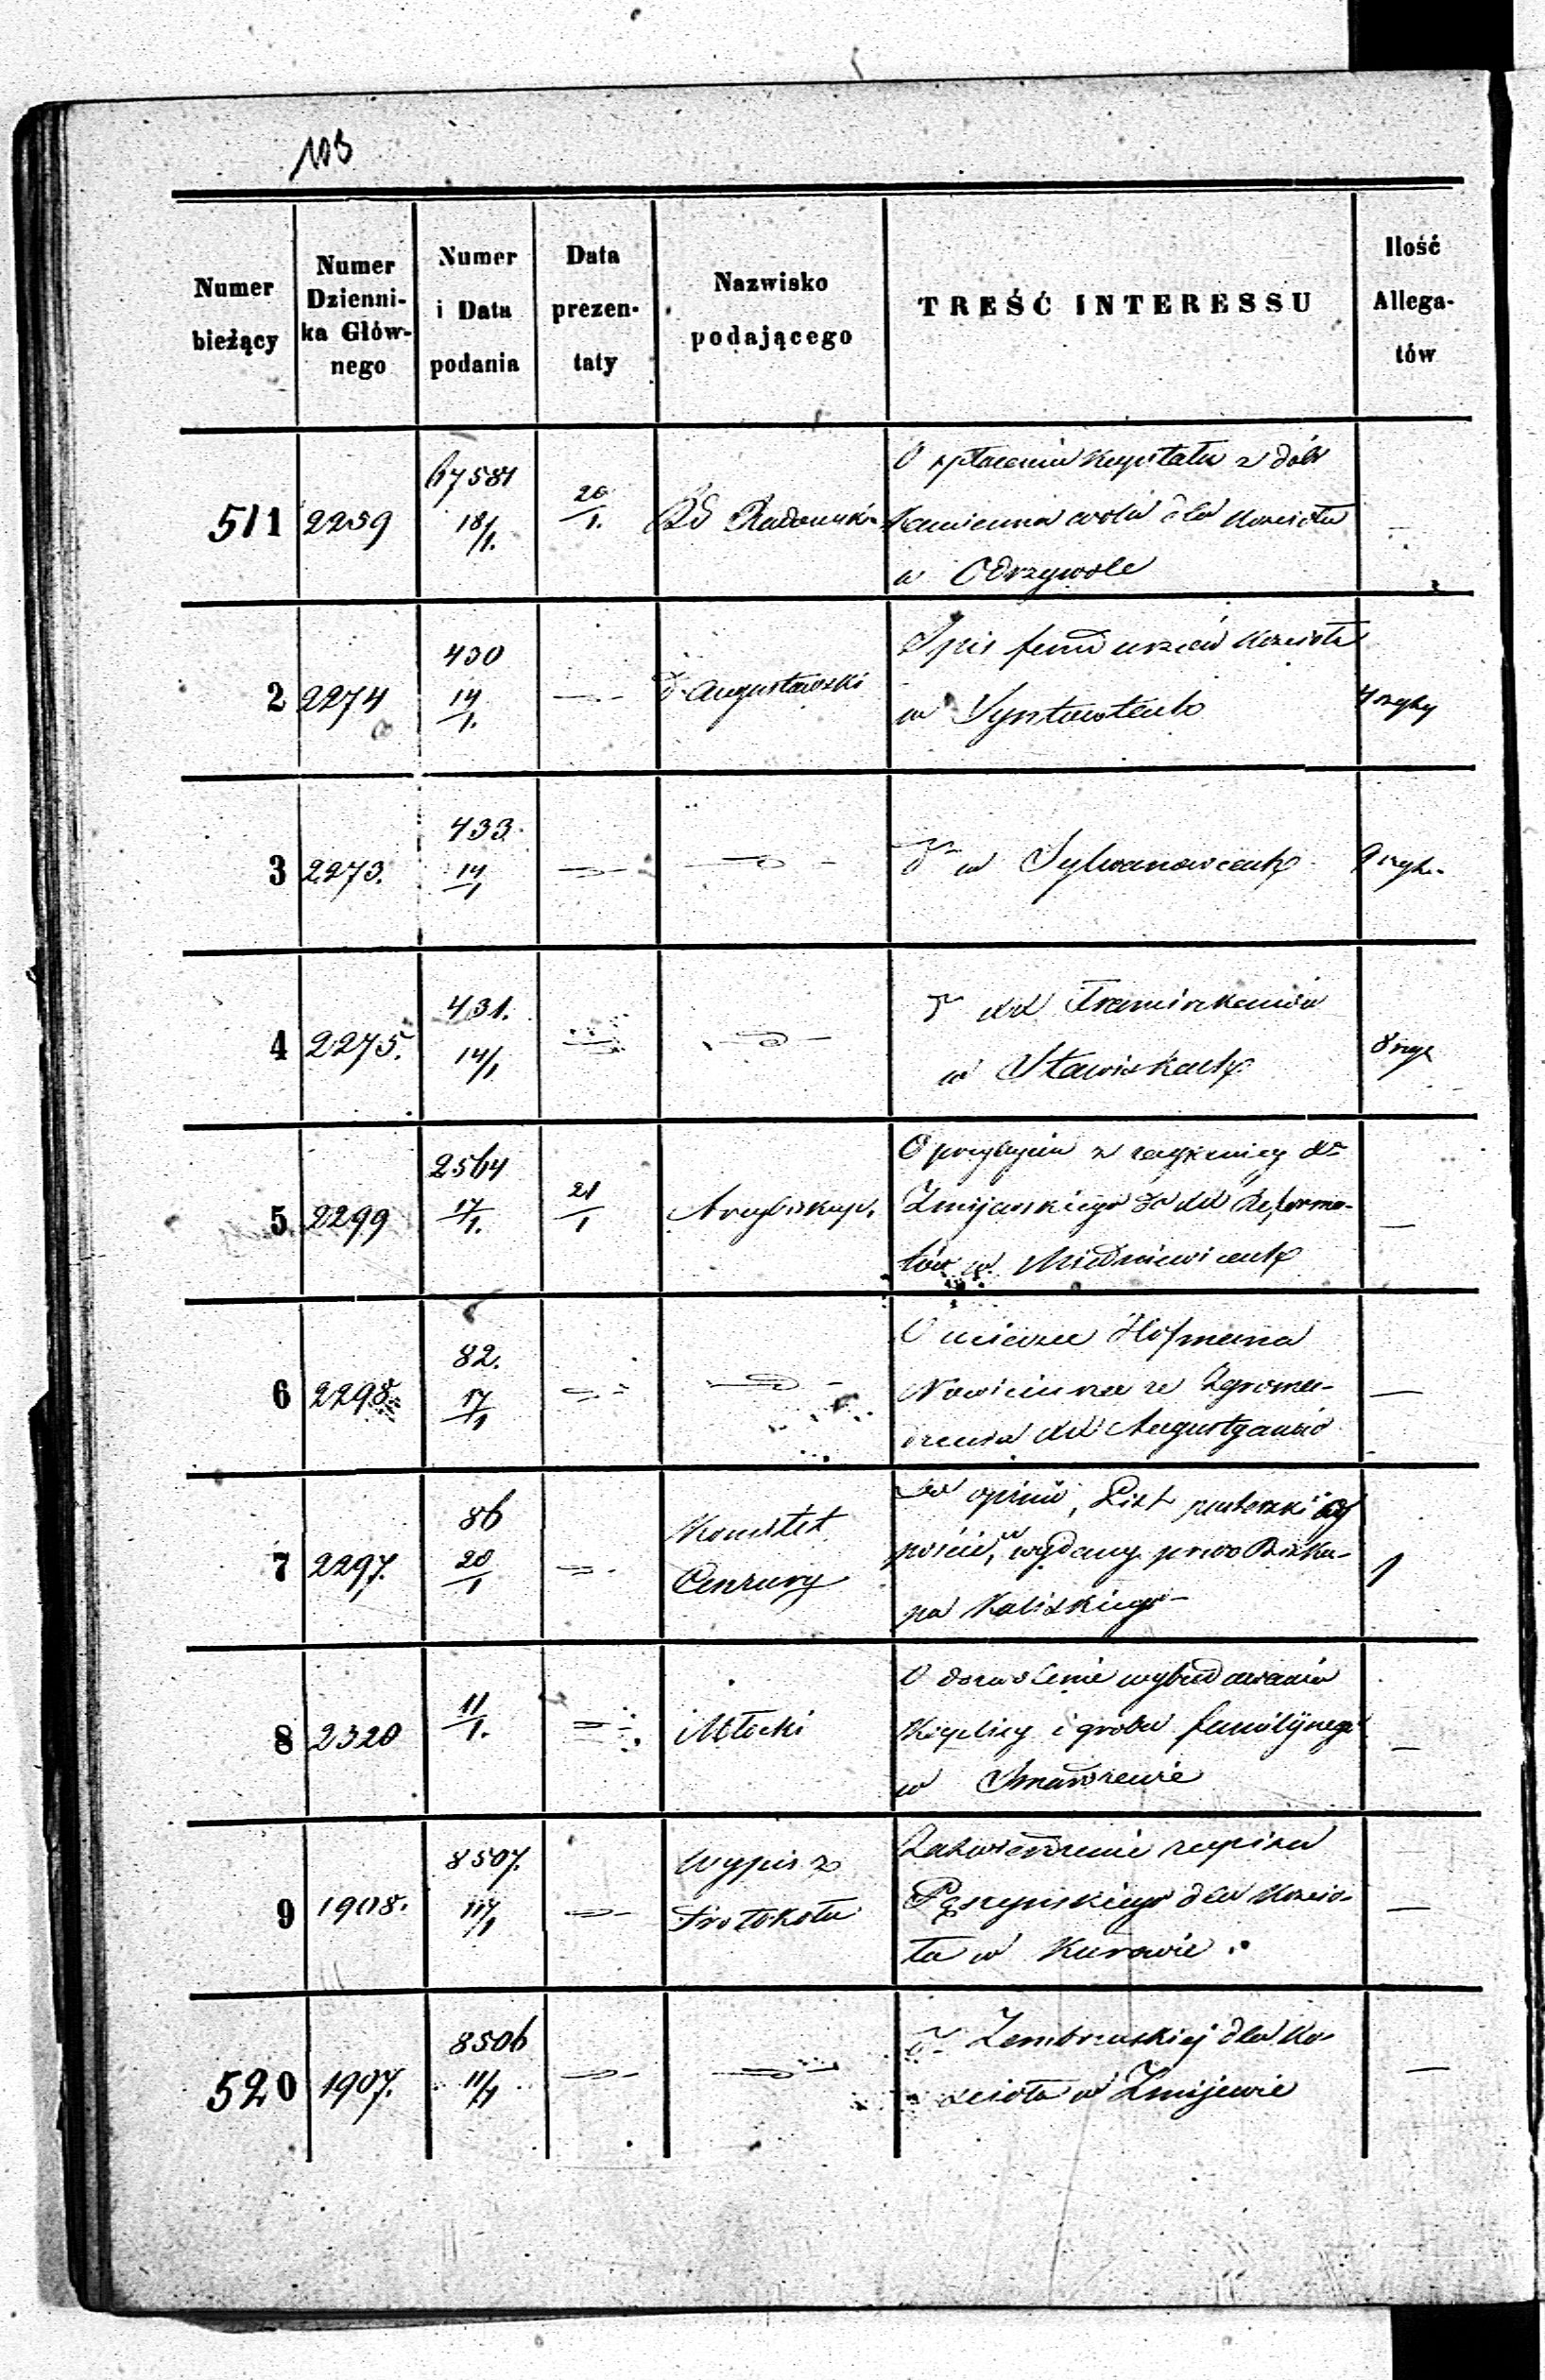 103
Numer bieżący
Numer Dzienni-ka Głów-nego
Numer i Data podania
Data prezen-taty
Nazwisko podającego
TREŚĆ INTERESSU
Ilość Allega-tów
511 2259 67581 18/1. 20/1. Rd
O spłacenia Kapitału z dóbr
Kamienna wola dla Kościoła
w Odrzywole
2 2274 430 14/1. d Augustowski
Spis funduszów Kościoła
w
3 2273. 433. 14/1
do w Sylwanowcach
4 2275. 431. 14/1
do XX Franciszkanów
w Stawiskach
5 2299 2564 17/1. 21/1 Arcybiskup.
O przybyciu z zagranicy Xa
Żmijewskiego do XX Reforma-
tów w Miedniewicach
6 2298 82. 17/1
O Hofmana
Nowicjusza ze Zgroma-
dzenia XX Augustyanów
7 2297. 86 20/1 Komitet
Cenzury
Do opinii, List pasterski o
poście, wydany przez Bisku-
pa Kaliskiego 1
8 2320 11/1. Młocki
O dozwolenie wybudowania
Kaplicy i grobu familijnego
w
9 1908. 8507. 11/1 Wypis z
Protokołu
Zatwierdzenie zapisu
dla Kościo-
ła w Kurowie.
520 1907. 8506 11/1
do Zembrzuskiej dla Ko-
ścioła w Żmijewie